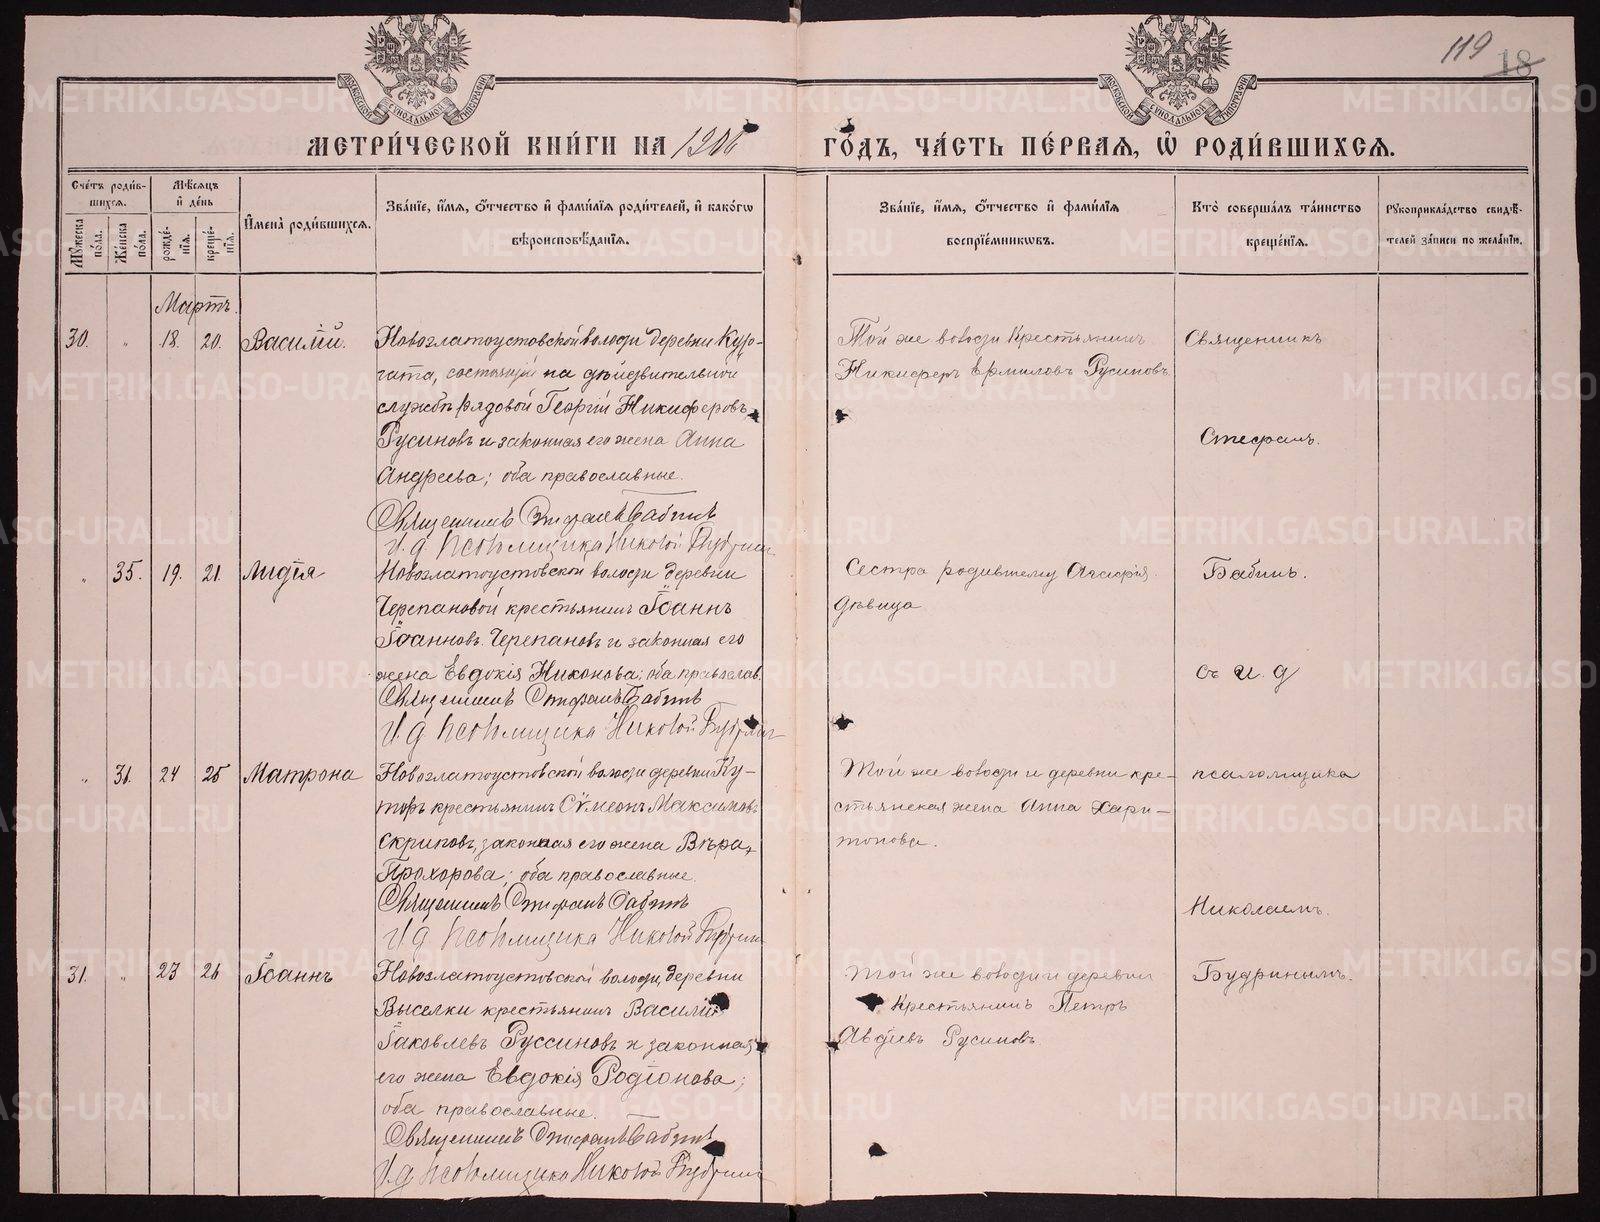 119 18
МОСКОВСКОЙ СУНОДАЛЬНОЙ ТИПОГРАФІИ
МОСКОВСКОЙ СУНОДАЛЬНОЙ ТИПОГРАФІИ
МЕТРИ́ЧЕСКОЙ КНИ́ГИ НА 1906 ГО́ДЪ, ЧА́СТЬ ПЕ́РВАЯ, Ѽ РОДИ́ВШИХСЯ.
Сче́тъ роди́в-
шихся.
Мѣ́сяцъ
и҆ де́нь
Мꙋ́жеска по́ла.
Же́нска по́ла.
рожде́-
нїѧ.
креще́-
нїѧ.
И҆мена̀ роди́вшихся.
Зва́нїе, и҆́мя, ѻ҆́тчество и҆ фами́лїя роди́телей, и҆ како́гѡ
вѣроисповѣ́данїя.
Зва́нїе, и҆́мя, ѻ҆́тчество и҆ фами́лїя
воспрїе́мникѡвъ.
Кто̀ соверша́лъ та́инство
креще́нїя.
Рꙋкоприкла́дство свидѣ́-
телей за́писи по жела́нїю.
Мартъ.
30. " 18. 20. Василій.
Новозлатоустовской волости деревни Кузо-
чата, состоящій на дѣйствительной
службѣ рядовой Георгій Никифоровъ
Русиновъ и законная его жена Анна
Андреева; оба православные.
Священникъ Стефанъ Бабинъ
И. д. псаломщика Николай Будринъ
Той же волости крестьянинъ
Никифоръ Ермиловъ Русиновъ.
Священникъ
Стефанъ
" 35. 19. 21. Лидія
Новозлатоустовской волости деревни
Черепановой крестьянинъ Іоаннъ
Іоанновъ Черепановъ и законная его
жена Евдокія Никонова; оба православ.
Священникъ Стефанъ Бабинъ
И. д. псаломщика Николай Будринъ
Сестра родившему
дѣвица
Бабинъ.
съ и. д
" 31. 24 25 Матрона
Новозлатоустовской волости деревни Ку-
торъ крестьянинъ Сѵмеонъ Максимовъ
Скриповъ, законная его жена Вѣра
Прохорова; оба православные.
Священникъ Стефанъ Бабинъ
И. д. псаломщика Николай Будринъ
Той же волости и деревни кре-
стьянская жена Анна Хари-
тонова.
псаломщика
Николаемъ.
31. " 23 26 Іоаннъ
Новозлатоустовской волости, деревни
Выселки крестьянинъ Василій
Іаковлевъ Руссиновъ и законная
его жена Евдокія Родіонова;
оба православные.
Священникъ Стефанъ Бабинъ
И. д. псаломщика Николай Будринъ
Той же волости и деревни
крестьянинъ Петръ
Авдіевъ Русиновъ.
Будринымъ.
METRIKI.GASO-URAL.RU